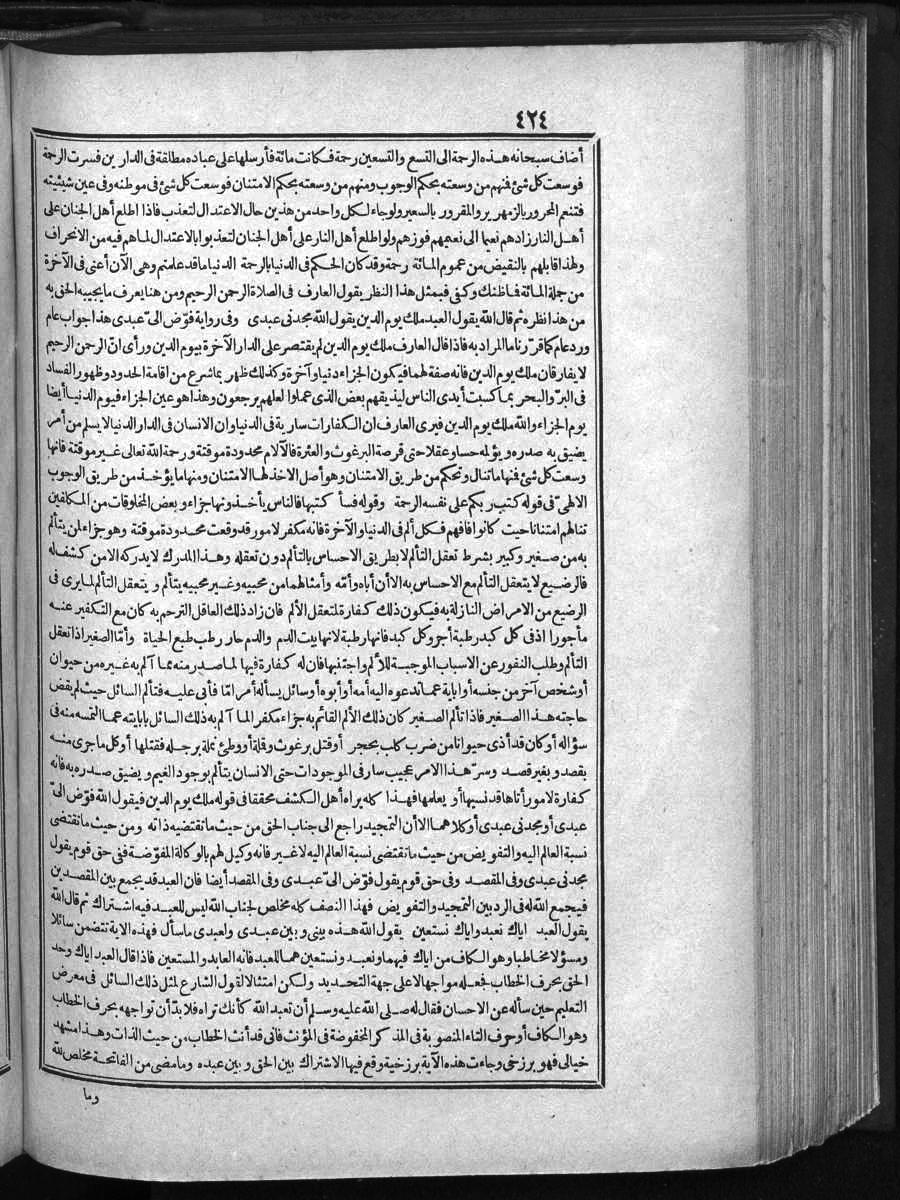 ٤٢٤
أضاف سبحانه هذه الرحمة الى التسع والتسعين رحمة فكانت مائة فأرسلها على عباده مطلقة فى الدارين فسرت الرحمة
فوسعت كل شئ فمنهم من وسعته بحكم الوجوب ومنهم من وسعته بحكم الامتنان فوسعت كل شئ فى موطنه وفى عين شيئيته
فتنعم المحرور بالزمهرير والمقرور بالسعير ولوجاء لكل واحد من هذين حال الاعتدال لتعذب فاذا اطلع أهل الجنان على
أهل النار زادهم نعيما الى نعيمهم فوزهم ولو اطلع أهل النار على أهل الجنان لتعذبوا بالاعتدال لما هم فيه من الانحراف
ولهذا قابلهم بالنقيض من عموم المائة رحمة وقد كان الحكم فى الدنيا بالرحمة الدنيا ما قد علمتم وهى الآن أعنى فى الآخرة
من جملة المائة فما ظنك وكفى فبمثل هذا النظر يقول العارف فى الصلاة الرحمن الرحيم ومن هنا يعرف ما يجيبه الحق به
من هذا نظره ثم قال الله يقول العبد ملك يوم الدين يقول الله مجدنى عبدى وفى رواية فوّض الىّ عبدى هذا جواب عام
ورد عام كما قرّرنا ما المراد به فاذا قال العارف ملك يوم الدين لم يقتصر على الدار الآخرة بيوم الدين ورأى انّ الرحمن الرحيم
لا يفارقان ملك يوم الدين فانه صفة لهما فيكون الجزاء دنيا وآخرة وكذلك ظهر بما شرع من اقامة الحدود وظهور الفساد
فى البرّ والبحر بما كسبت أيدى الناس ليذيقهم بعض الذى عملوا لعلهم يرجعون وهذا هو عين الجزاء فيوم الدنيا أيضا
يوم الجزاء والله ملك يوم الدين فيرى العارف ان الكفارات سارية فى الدنيا وان الانسان فى الدار الدنيا لا يسلم من أمر
يضيق به صدره ويؤلمه حسا وعقلا حتى قرصة البرغوث والعثرة فالآلام محدودة موقتة ورحمة الله تعالى غير موقتة فانها
وسعت كل شئ فمنها ما تنال وتحكم من طريق الامتنان وهو أصل الاخذ لها الامتنان ومنها ما يؤخذ من طريق الوجوب
الالهىّ فى قوله كتب ربكم على نفسه الرحمة وقوله فسأكتبها فالناس يأخذونها جزاء وبعض المخلوقات من المكلفين
تنالهم امتنانا حيث كانوا فافهم فكل ألم فى الدنيا والآخرة فانه مكفر لامور قد وقعت محدودة موقتة وهو جزاء لمن يتألم
به من صغير وكبير بشرط تعقل التألم لا بطريق الاحساس بالتألم دون تعقله وهذا المدرك لا يدركه الا من كشف له
فالرضيع لا يتعقل التألم مع الاحساس به الا أن أباه وأمّه وأمثالهما من محبيه وغير محبيه يتألم ويتعقل التألم لما يرى فى
الرضيع من الامراض النازلة به فيكون ذلك كفارة لمتعقل الألم فان زاد ذلك العاقل الترحم به كان مع التكفير عنه
مأجورا اذ فى كل كبد رطبة أجر وكل كبد فانها رطبة لانها بيت الدم والدم حار رطب طبع الحياة وأمّا الصغير اذا تعقل
التألم وطلب النفور عن الاسباب الموجبة للألم واجتنبها فان له كفارة فيها لما صدر منه مما آلم به غيره من حيوان
أو شخص آخر من جنسه أو اباية عما تدعوه اليه أمه أو أبوه أو سائل يسأله أمرا مّا فأبى عليه فتألم السائل حيث لم يقض
حاجته هذا الصغير فاذا تألم الصغير كان ذلك الألم القائم به جزاء مكفر لما آلم به ذلك السائل بابايته عما التمسه منه فى
سؤاله أو كان قد أذى حيوانا من ضرب كلب بحجر أو قتل برغوث وقملة أو وطئ نملة برجله فقتلها أو كل ما جرى منه
بقصد وبغير قصد وسرّ هذا الامر عجيب سار فى الموجودات حتى الانسان يتألم بوجود الغيم ويضيق صدره به فانه
كفارة لامور أتاها قد نسيها أو يعلمها فهذا كله يراه أهل الكشف محققا فى قوله ملك يوم الدين فيقول الله فوّض الىّ
عبدى أو مجدنى عبدى أو كلاهما الا أن التمجيد راجع الى جناب الحق من حيث ما تقتضيه ذاته ومن حيث ما تقتضى
نسبة العالم اليه والتفويض من حيث ما تقتضى نسبة العالم اليه لا غير فانه وكيل لهم بالوكالة المفوّضة ففى حق قوم يقول
مجدنى عبدى وفى المقصد وفى حق قوم يقول فوّض الىّ عبدى وفى المقصد أيضا فان العبد قد يجمع بين المقصدين
فيجمع الله له فى الرد بين التمجيد والتفويض فهذا النصف كله مخلص لجناب الله ليس للعبد فيه اشتراك ثم قال الله
يقول العبد اياك نعبد واياك نستعين يقول الله هذه بينى وبين عبدى ولعبدى ما سأل فهذه الآية تتضمن سائلا
ومسؤلا مخاطبا وهو الكاف من اياك فيهما ونعبد ونستعين هما للعبد فانه العابد والمستعين فاذا قال العبد اياك وحد
الحق بحرف الخطاب فجعله مواجها لا على جهة التحديد ولكن امتثالا لقول الشارع لمثل ذلك السائل فى معرض
التعليم حين سأله عن الاحسان فقال له صلى الله عليه وسلم أن تعبد الله كأنك تراه فلا بدّ أن تواجهه بحرف الخطاب
وهو الكاف أو حرف التاء المنصوبة فى المذكر المخفوضة فى المؤنث فانى قد أنث الخطاب من حيث الذات وهذا مشهد
خيالى فهو برزخى وجاءت هذه الآية برزخية وقع فيها الاشتراك بين الحق وبين عبده وما مضى من الفاتحة مخلص لله
وما